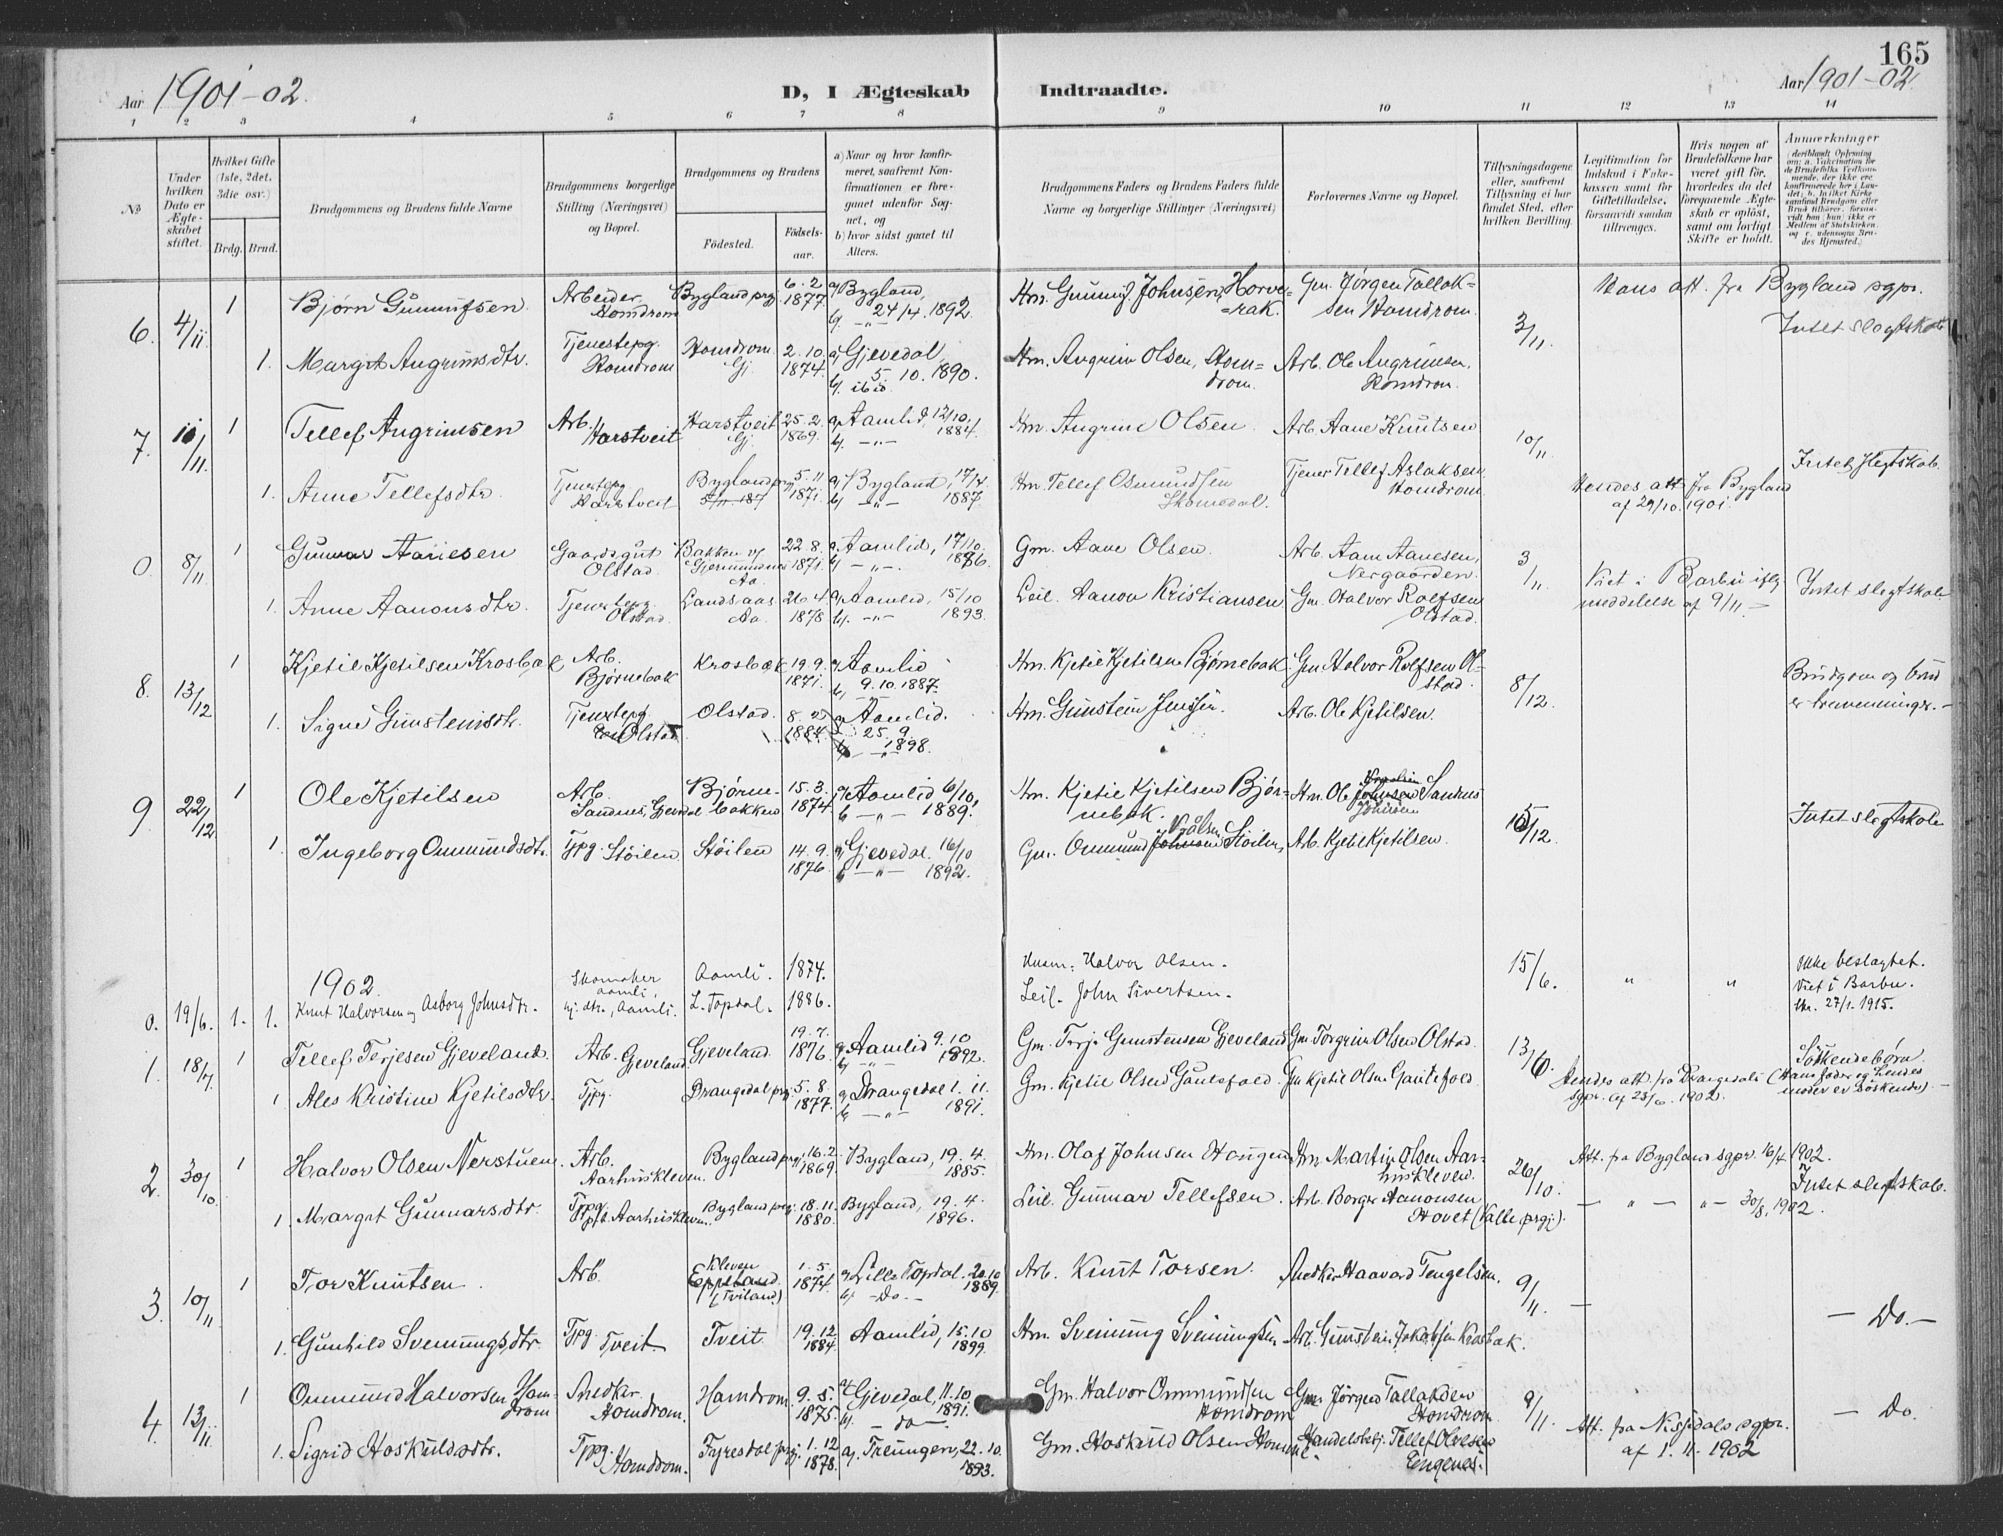 165
Aar 1901-02. D, I Ægteskab Indtraadte. Aar 1901-02
1 2 3 4 5 6 7 8 9 10 11 12 13 14
No
Under hvilken Dato er Ægteskabet stiftet.
Hvilket Gifte (1ste, 2det, 3die osv.)
Brdg. Brud.
Brudgommens og Brudens fulde Navne
Brudgommens borgerlige Stilling (Næringsvei) og Bopæl.
Brudgommens og Brudens
Fødested.
Fødselsaar.
a) Naar og hvor konfirmeret, saafremt Konfirmationen er foregaaet udenfor Sognet, og
b) hvor sidst gaaet til Alters.
Brudgommens Faders og Brudens Faders fulde Navne og borgerlige Stillinger (Næringsvei)
Forlovernes Navne og Bopæl.
Tillysningsdagene eller, saafremt Tillysning ei har fundet Sted, efter hvilken Bevilling.
Legitimation for Indskud i Enkekassen samt for Giftetilladelse, forsaavidt saadan tiltrænges.
Hvis nogen af Brudefolkene har været gift før, hvorledes da det foregaaende Ægteskab er opløst, samt om lovligt Skifte er holdt.
Anmærkninger
6. 4/11 1 Bjørn Gunnufsen Arbeider Homdrom Bygland prgj. 6.2 1877 a) Bygland, 24/4 1892 b) -"- Hm. Gunnuf Johnsen, Horverak. Gm. Jørgen Tallaksen Homdrom. 3/11. Hans att. fra Bygland sgpr. Intet slegtskab
1. Margit Angrimsdtr. Tjenestepg. Homdrom Homdrom Gj. 2.10. 1874. a) Gjevedal, 5.10.1890. b) ibid. Hm. Angrim Olsen, Homdrom. Arb. Ole Angrimsen, Homdrom.
7. 10/11 1 Tellef Angrimsen Arb. Harstveit Harstveit Gj. 25.2 1869. a) Aamlid, 12/10 1884. b) -"- Hm. Angrim Olsen. Arb. Aane Knutsen 10/11 Intet slegtskab.
1. Anne Tellefsdtr. Tjenestepg Harstveit Bygland prgj. 5.11 1871 a) Bygland, 17/4 1887 b) -"- Hm. Tellef Osmundsen Skomedal. Tjener Tellef Aslaksen Homdrom. Hendes att. fra Bygland af 29/10 1901.
0. 8/11 1 Gunnar Aanesen Gaardsgut Olstad Bakken v/ Aa. 22.8. 1871. a) Aamlid, 17/10 1886. b) -"-. Gm. Aane Olsen. Arb. Aane Aanesen, Nergaarden. 3/11. Viet i Barbu iflg. meddelelse af 9/11 - Intet slegtskab
1. Anne Aanonsdtr. Tjenestepg Olstad. Landsaas Aa. 26.4 1878 a) Aamlid, 15/10 1893. b) -"- Leil. Aanon Kristiansen Gm. Halvor Rolfsen Olstad.
8. 13/12 1 Kjetil Kjetilsen Krosbæk Arb. Bjørnebak Krosbæk 19.9. 1871. a) Aamlid 9.10.1887. Hm. Kjetil Kjetilsen Bjørnebak. Gm Halvor Rolfsen Olstad. 8/12. Brudgom og brud er tremenninger. -
1. Signe Gunsteinsdtr. Tjenestepg Olstad Olstad. 1884 a) Aamlid. 25.9. 1898. Hm. Gunstein Jensen. Arb. Ole Kjetilsen.
9 22/12 1 Ole Kjetilsen Arb. Sandnes, Gjevedal Bjørnebakken 15.3. 1874. a) Aamlid 6/10 1889. b -"- Hm. Kjetil Kjetilsen Bjørnebak. Hm. Ole Sandnes 5/12. Intet slegtskab
1. Ingeborg Ommundsdtr. Tjpg. Støilen Støilen 14.9. 1876. a) Gjevedal. 16/10 1892. b -"- Gm. Ommund Støilen, Arb. Kjetil Kjetilsen.
1902.
0. 19/6. 1. 1. Knut Halvorsen og Asborg Johnsdtr. Skomaker Aamli. gj. dtr., Aamli. Aamli. L. Topdal. 1874. 1886. Husm. Halvor Olsen. Leil. John Sivertsen. 15/6. " " Ikke beslagtet. Viet i Barbu. Skr. 27/1.1915.
1. 18/7. 1 Tellef Terjesen Gjeveland Arb. Gjeveland Gjeveland 19.7. 1876. a) Aamlid 9.10 1892. b) -"- Gm. Terje Gunstensen Gjeveland Gm Torgrim Olsen Olstad. 13/ Søskendebørn. (Hans fader og hendes moder er søskende)
1 Ales Kristine Kjetilsdtr. Tjpg. Drangedal prgj. 5.8. 1877. a) Drangedal 1.11. 1891. b) -"- Gm. Kjetil Olsen Gautefald. Gm Kjetil Olsen Gautefald Hendes att. fra Drangedals sgpr. af 23/6. 1902.
2. 30/10. 1 Halvor Olsen Nerstuen Arb. Aarhuskleven. Bygland prgj. 16.2 1869. Bygland, 19.4. 1885. Hm. Olaf Johnsen Haugen Hm. Martin Olsen Aarhuskleven. 26/10. Att. fra Bygland sgpr. 16/4 1902. Intet slegtskab.
1 Margit Gunnarsdtr. Tjpg. Aarhuskleven. Bygland prgj. 18.11. 1880. Bygland, 19.4. 1896. Leil. Gunnar Tellefsen. Arb. Borger Aanonsen Hovet (Valle prgj.) -"- "- 30/8, 1902.
3. 10/11. 1 Tor Knutsen. Arb. Kleven Eppeland (Tviland) 1.5. 1874. a) Lille Topdal. 20.10 1889. b) -Do.- Arb. Knut Torsen. Snedker Haavard Tengelsen. 9/11. -
1. Gunhild Sveinungsdtr. Tjpg Tveit. Tveit. 19.12 1884. Aamlid, 15.10 1899. Hm. Sveinung Sveinungsen Arb. Gunstein Jakobsen Krosbak. - Do. -
4. 13/11. 1 Ommund Halvorsen Homdrom Snedker Homdrom. Homdrom 9.5. 1875. a) Gjevedal, 11.10 1891. b) - do -. Gm. Halvor Ommundsen Homdrom Gm. Jørgen Tallaksen Homdrom 9/11. - Do.
1. Sigrid Hoskuldsdtr. Tjpg. Homdrom. Fyresdal prgj. 1.12 1878. a. Treungen, 22.10. 1893. Gm. Hoskuld Olsen Handelsbetj. Tellef Olvesen Engenes. Att. fra Nissedals sgpr. af 1.11.1902